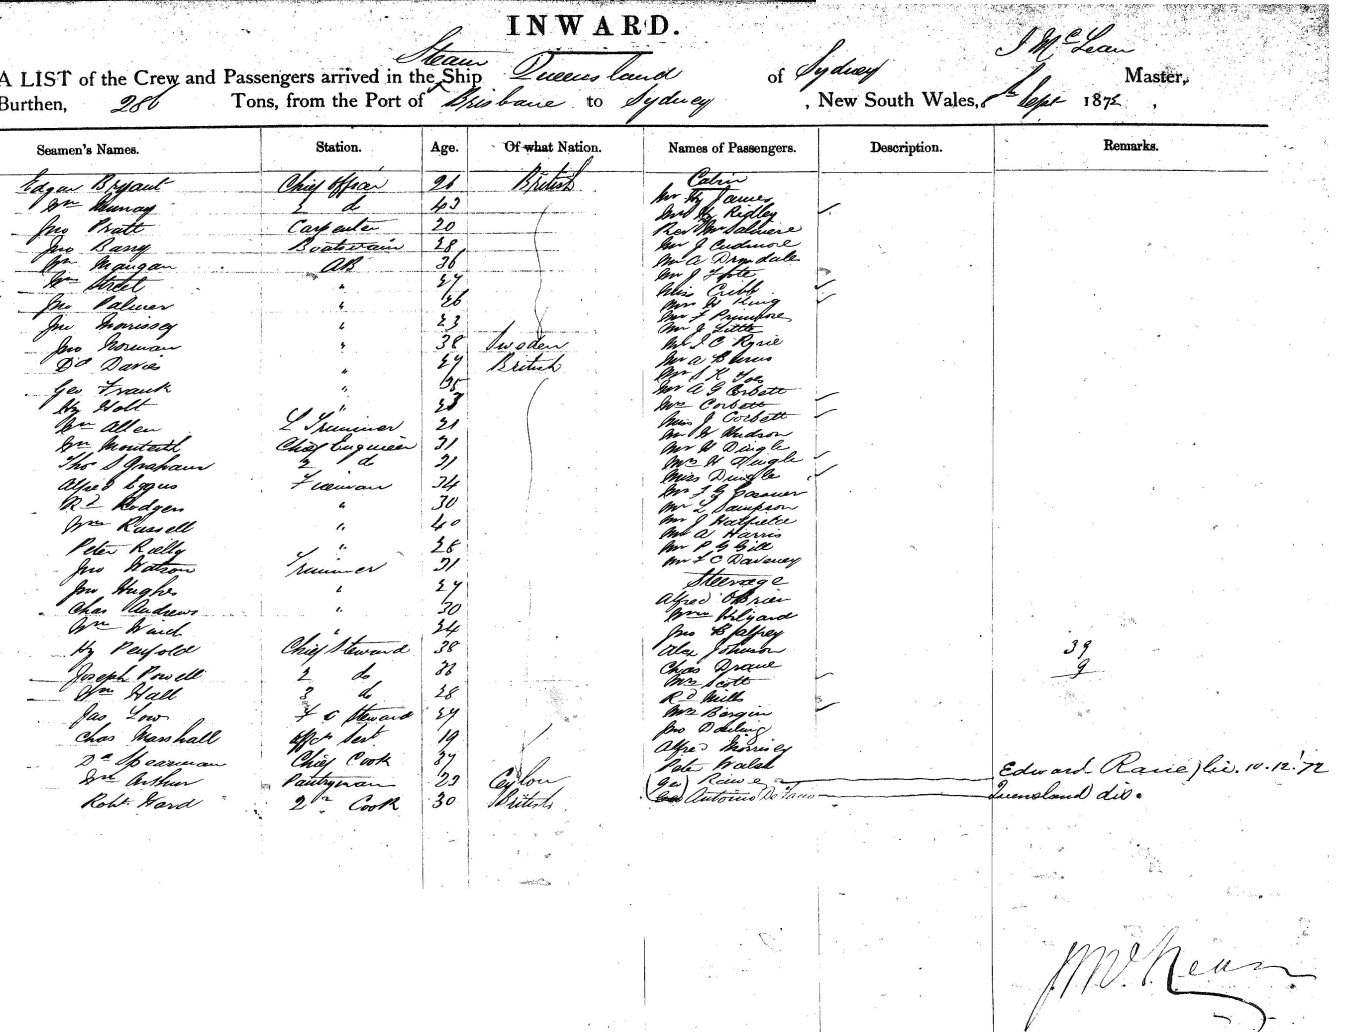 INWARD.
A LIST of the Crew and Passengers arrived in the Steam Ship Queensland of Sydney J McLean Master,
Burthen, 286 Tons, from the Port of Brisbane to Sydney, New South Wales, Sept 1872.
Seamen's Names. Station. Age. Of what Nation. Names of Passengers. Description. Remarks.
Edgar Bryant Chief Officer 26 British Cabin
Wm Murray 2 do 43 Mr Hy James
Jno Pratt Carpenter 20 Ridley
Jno Barry Boatswain 28 Rev
Wm Mangan AB 36 Mr J Cudmore
Wm Street " 27 Mr A Drysdale
Jno Palmer " 26 Mr J Foote
Jno Morrissey " 23 Miss Cribb
Jno Norman " 38 Sweden King
Dd Davis " 27 British Mr F Primrose
Geo Frank " Mr J Little
Hy Holt " Mr J C Ryrie
Wm Allen L Trimmer 21 Mr A
Wm Monteith Chief Engineer 31 Mr
Thos S Graham 2 do 31 Mr A G Corbett
Alfred Eggus Fireman 34 Mrs Corbett
Rd Rodgers " 30 Miss J Corbett
Wm Russell " 40 Mr W Hudson
Peter Rielly " 28 Mr H Dingle
Jno Watson Trimmer 21 Mrs H Dingle
Jno Hughes " 27 Miss Dingle
Chas Andrews " 30 Mr F G
Wm Wind " 24 Mr L Sampson
Hy Penfold Chief Steward 38 Mr J Hatfield
Joseph Powell 2 do 36 Mr A Harris
Wm Hall 3 do 28 Mr P G Gill
Jas Low F C Steward 27 Mr F C Daveney
Chas Marshall Offcrs Servt 19 Steerage
Dd Spearman Chief Cook 37 Alfred O'Brien
Wm Arthur Pantryman 22 Ceylon Wm Hilyard
Robt Ward 2nd Cook 30 British Jno
Alex Johnson 39
Chas Drane 9
Mrs Scott
Rd Mills
Mrs Bergin
Jno Dowling
Alfred Morrisey
Peter Walsh
Rawe Edward
Antonio De Queensland dis.